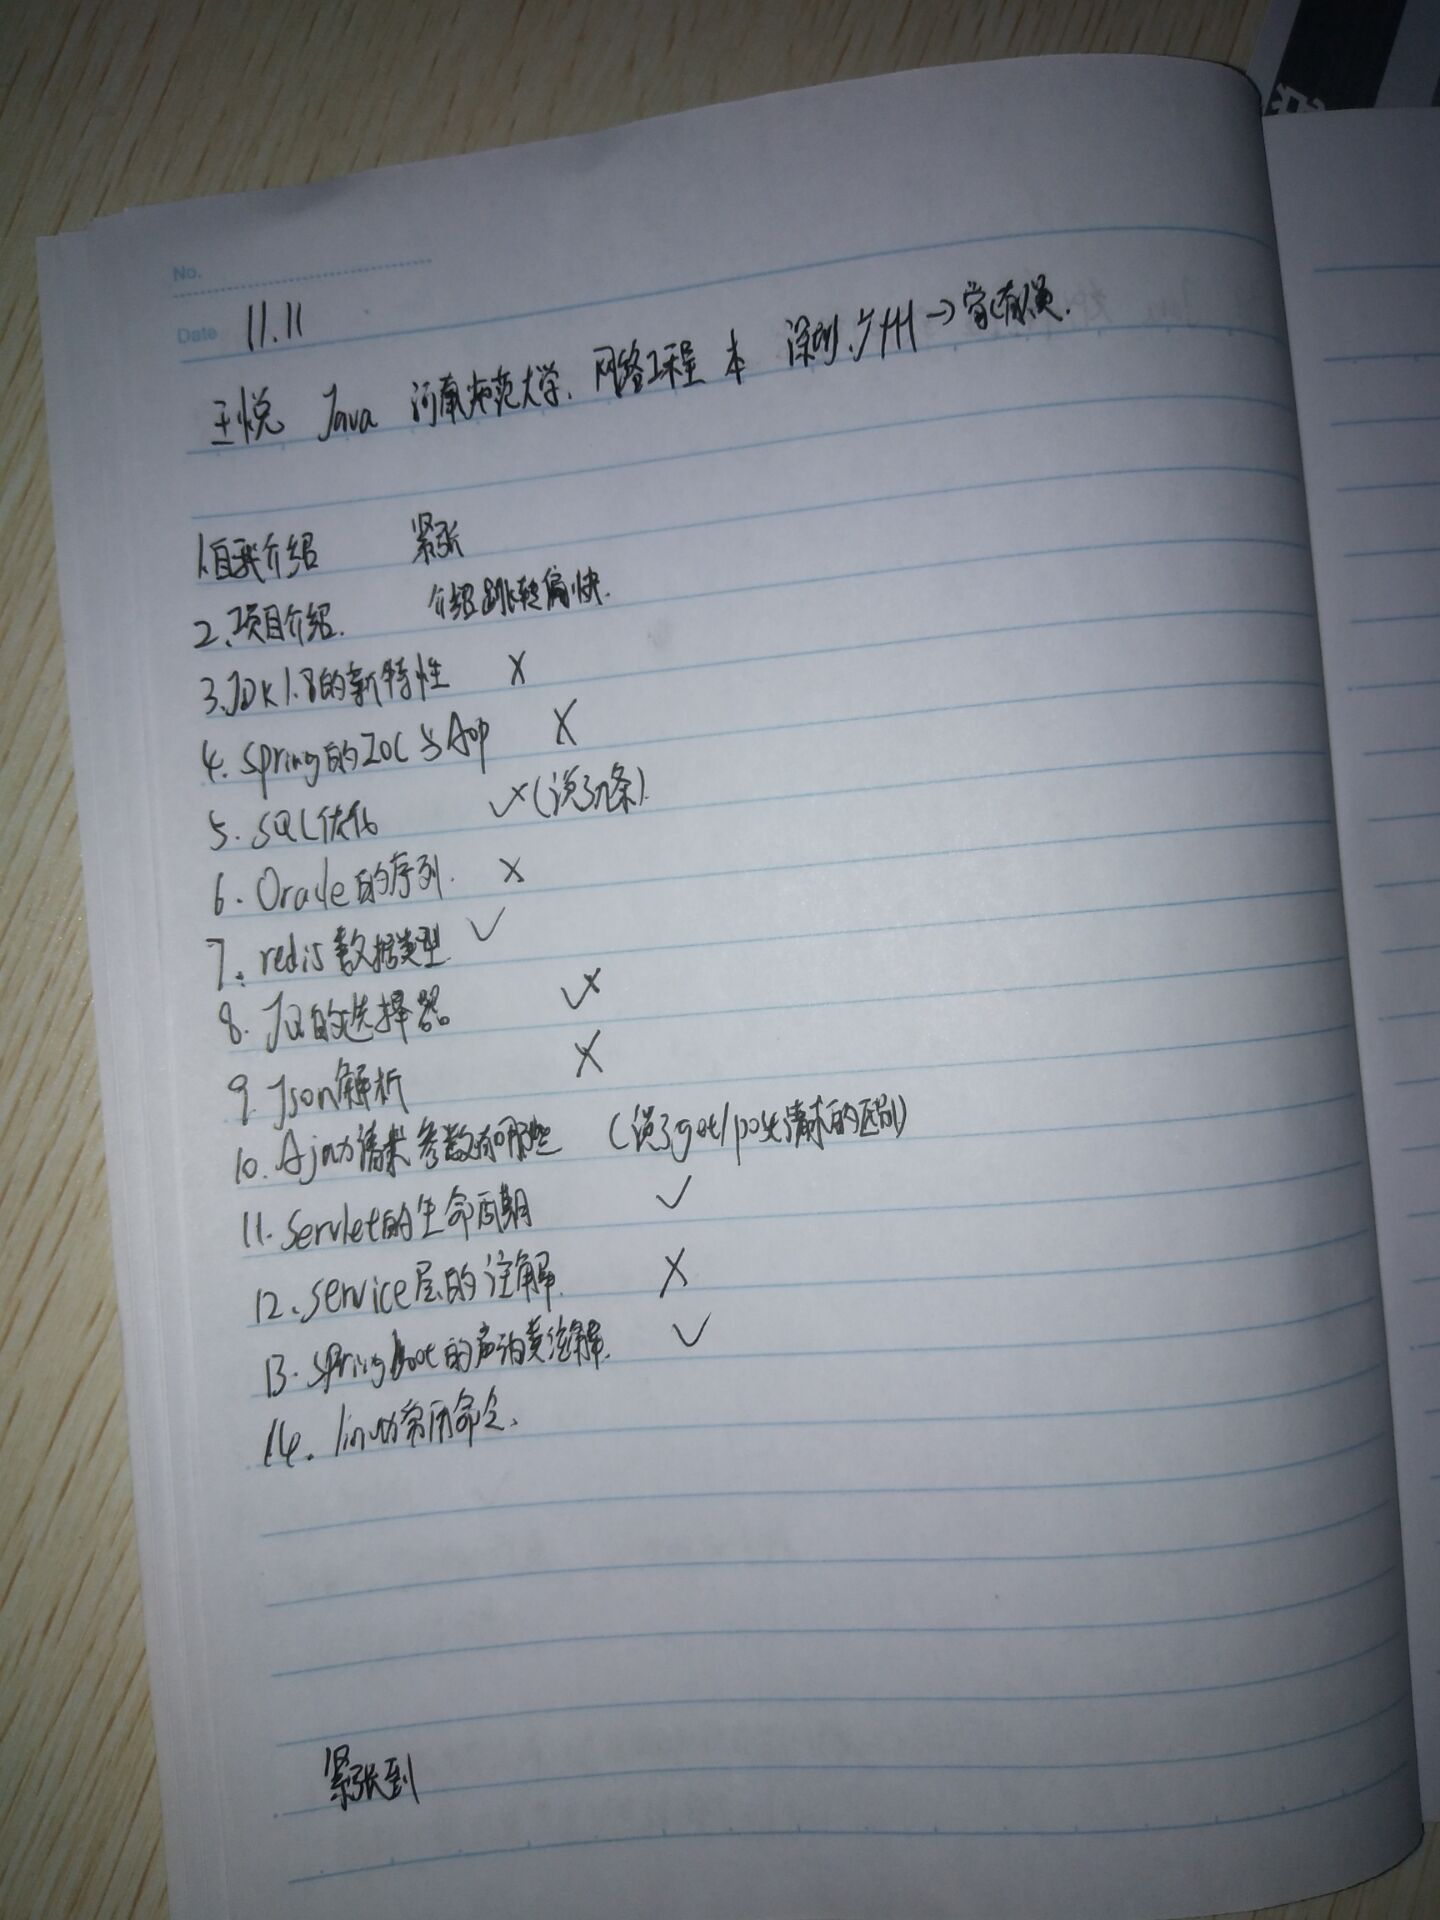 No.
Date 11.11
王悦 Java 河南师范大学. 网络工程 本 深圳.广州→
1.自我介绍 紧张
2.项目介绍. 介绍跳转偏快.
3.JDK1.8的新特性 ×
4.Spring的IOC与Aop ×
5.SQL优化 ✓×(说了几条).
6.Oracle的序列. ×
7.redis数据类型 ✓
8.JQ的选择器。 ✓×
9.Json解析 ×
10.Ajax请求参数有哪些 (说了get/post请求的区别)
11.Servlet的生命周期 ✓
12.service层的注解. ×
13.Springboot的启动类注解. ✓
14.linux常用命令.
紧张到